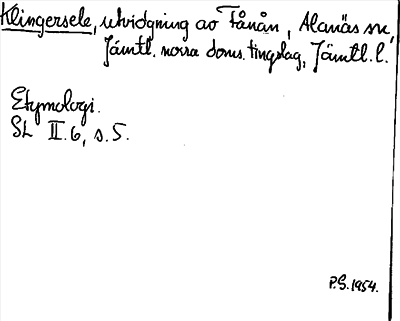 Klingersele, utvidgning av Fånån, Alanäs sn,
Jämtl. norra doms. tingslag, Jämtl. l.
Etymologi.
SL II.6, s. 5.
P.S. 1954.